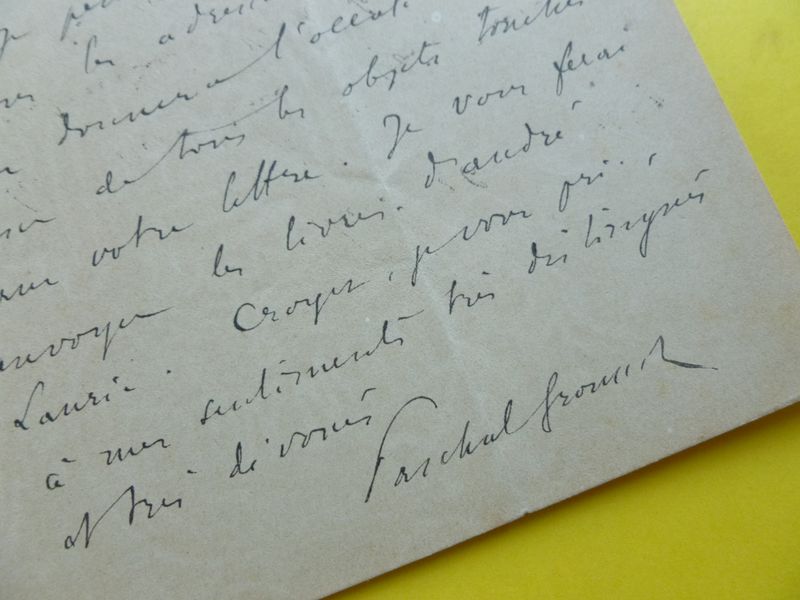 je
les adress
donner à l'occas
de tous les objets touchés
votre lettre. Je vous ferai
envoyer les livres d'André
Laurie. Croyez, je vous prie,
à mes sentiments très distingués
et très dévoués
Paschal Grousset